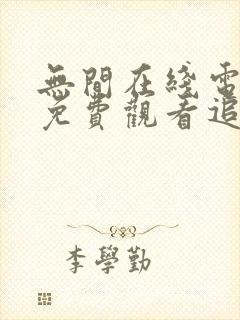 無間在綫電
免費觀看追
李學勤